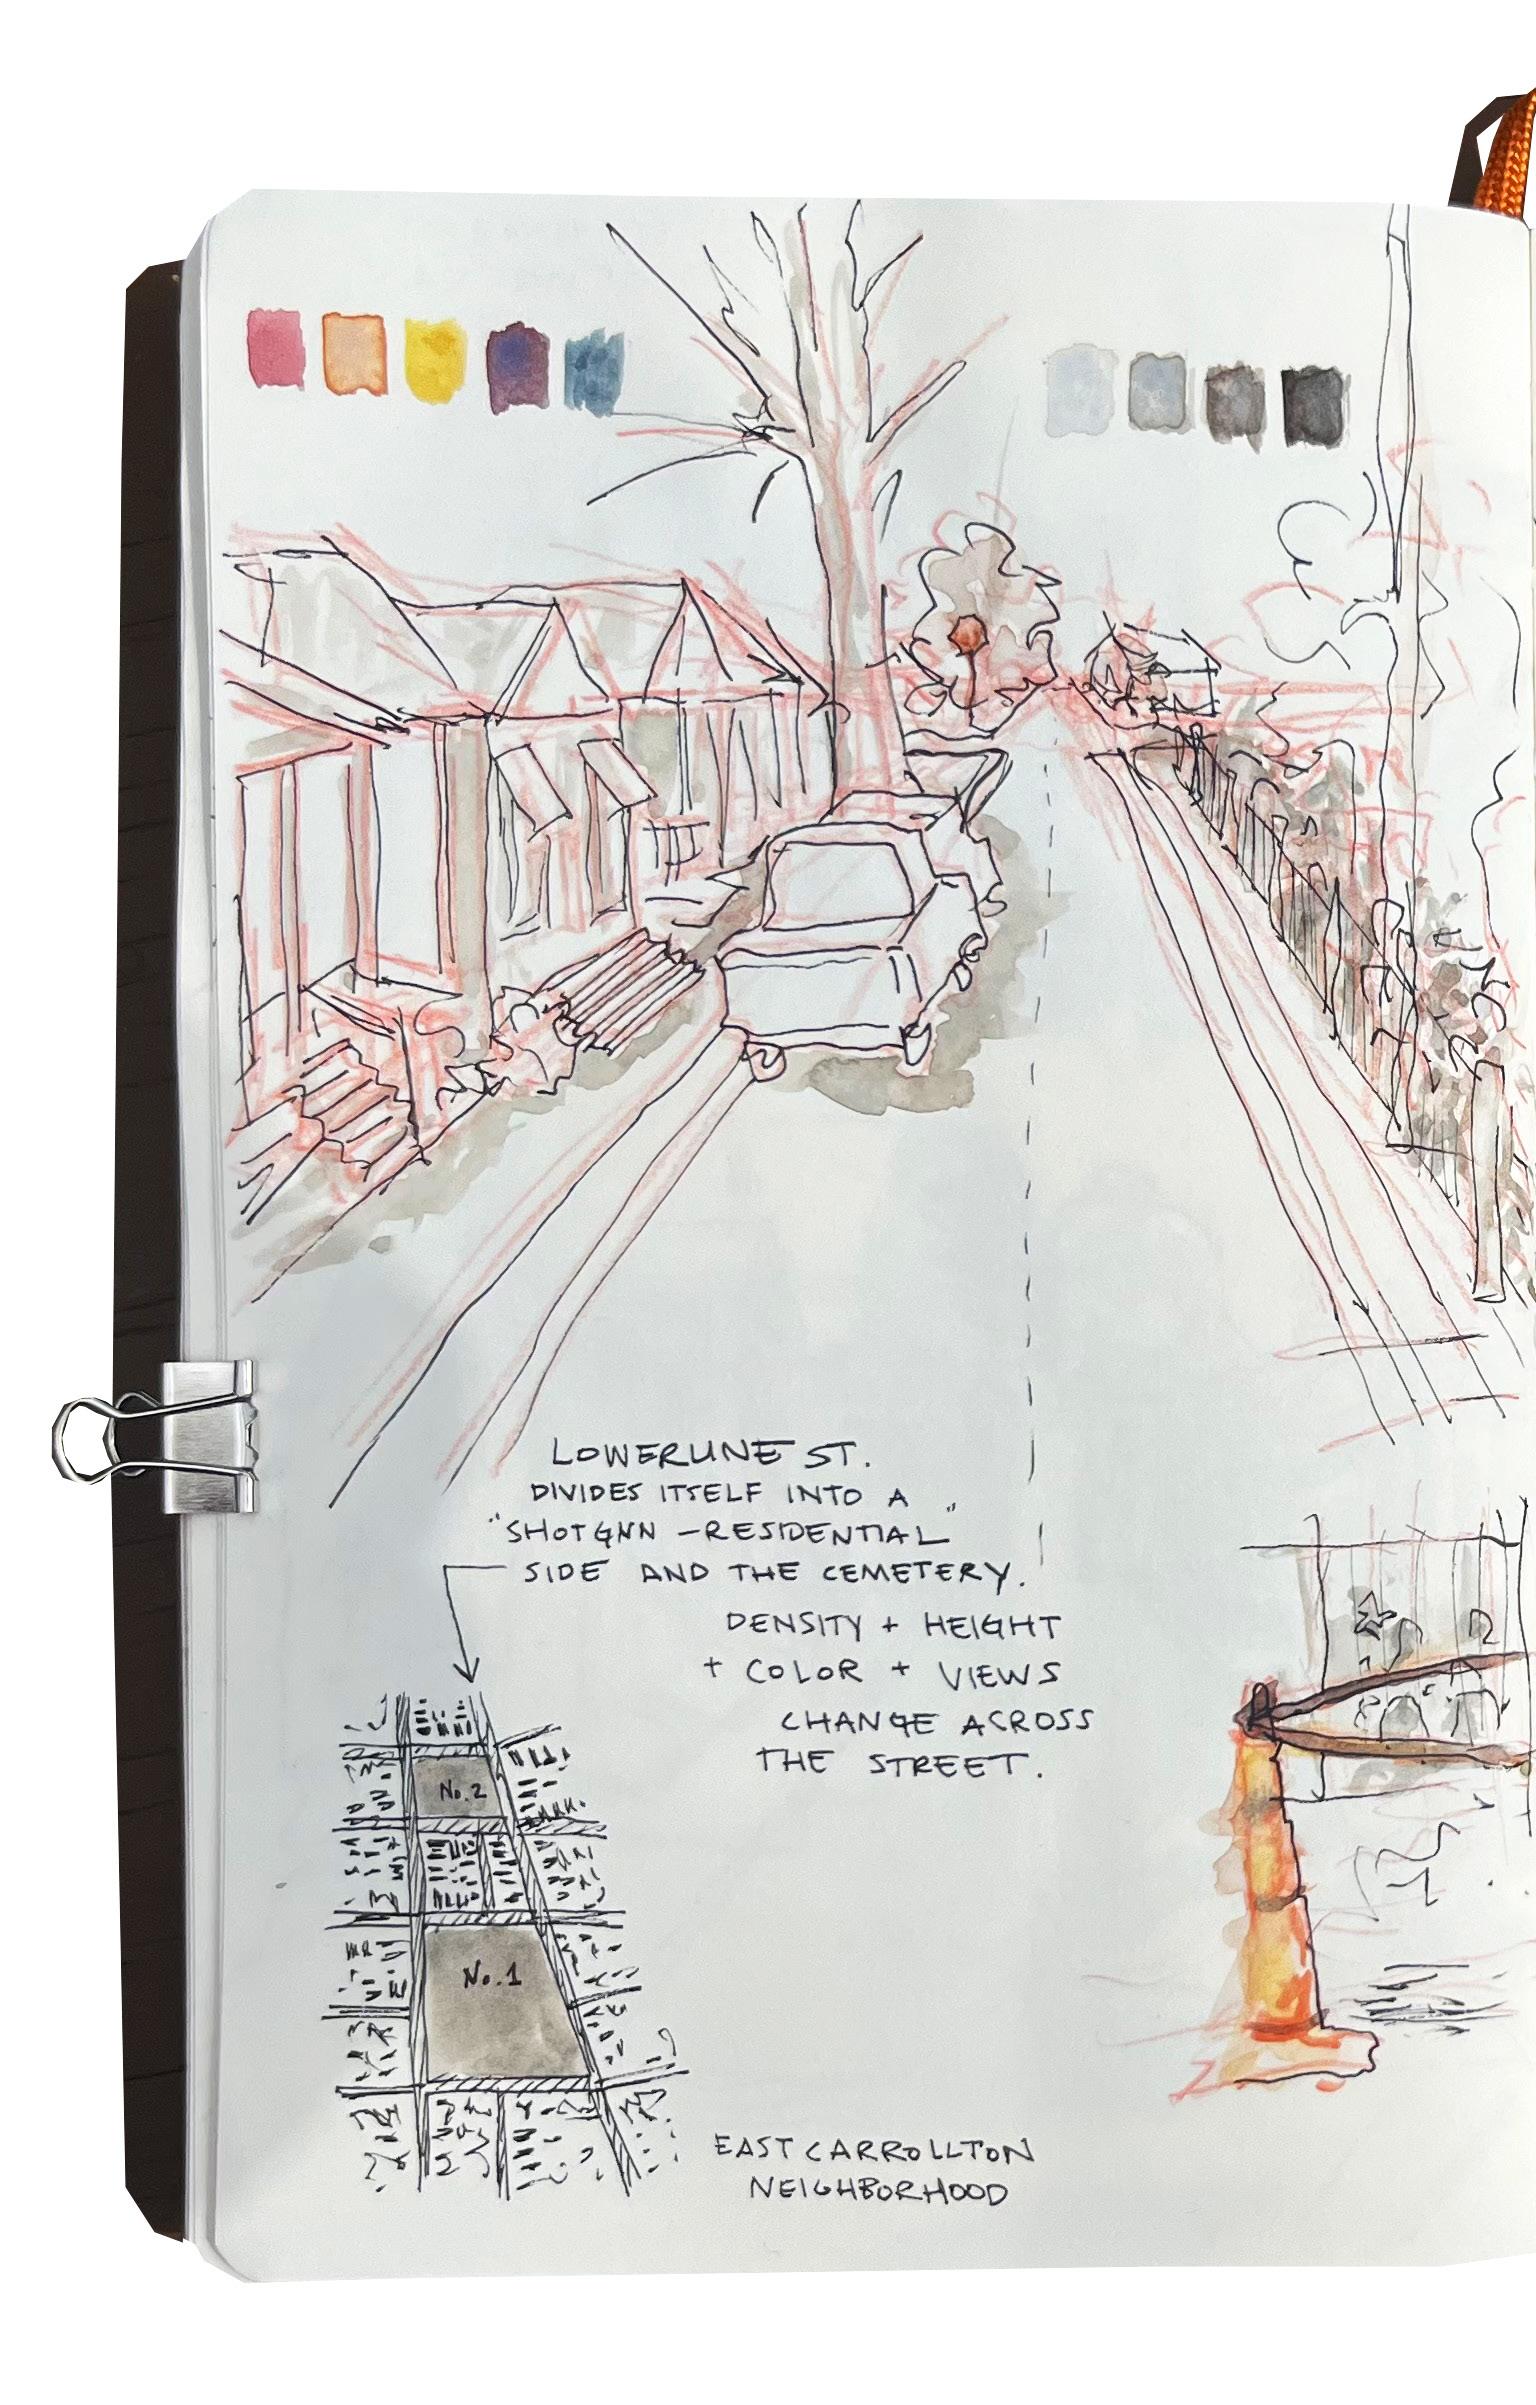 LOWERLINE ST.
DIVIDES ITSELF INTO A
"SHOTGUN -RESIDENTIAL"
SIDE AND THE CEMETERY.
DENSITY + HEIGHT
+ COLOR + VIEWS
CHANGE ACROSS
THE STREET.
No.2
No.1
EAST CARROLLTON
NEIGHBORHOOD